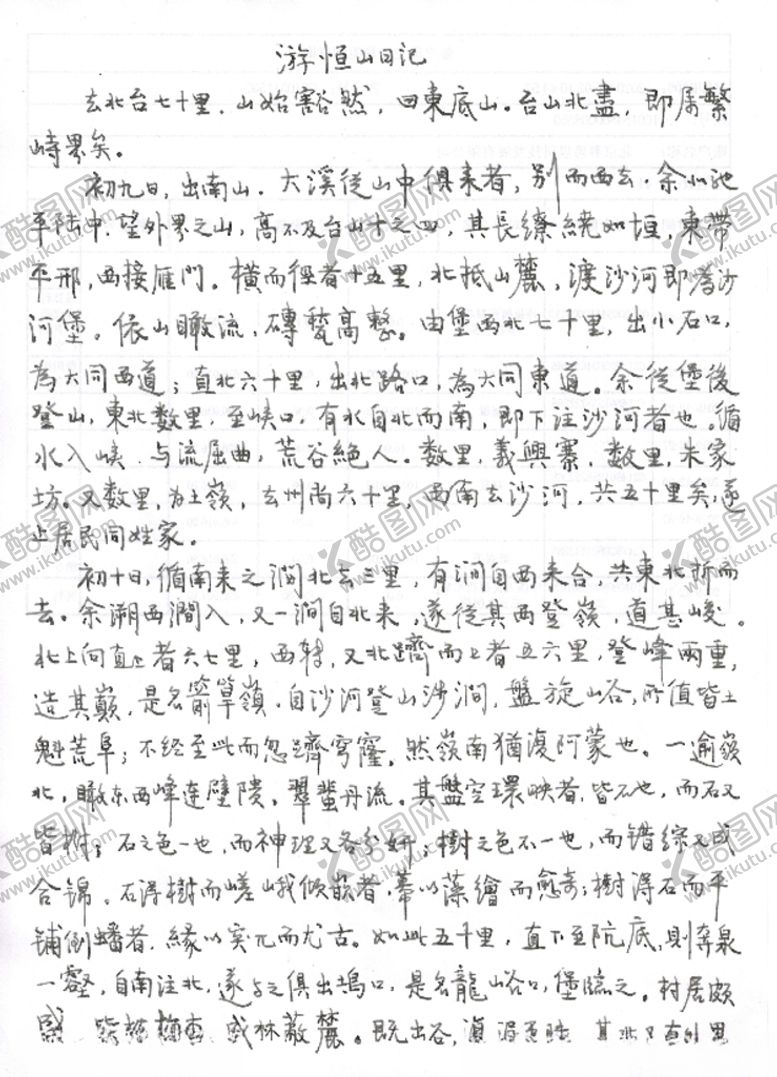 游恒山日記
去北台七十里，山始豁然，曰東底山。台山北盡，即属繁
峙界矣。
初九日，出南山。大溪從山中俱来者，别而西去。余北馳
平陸中，望外界之山，高不及台山十之四，其長繚繞如垣，東帶
平邢，西接雁門。横而徑者十五里，北抵山麓，渡沙河即為沙
河堡。依山瞰流，磚甃高整。由堡西北七十里，出小石口，
為大同西道；直北六十里，出北路口，為大同東道。余從堡後
登山，東北数里，至峡口，有水自北而南，即下注沙河者也。循
水入峡，与流屈曲，荒谷絶人。数里，義興寨，数里，朱家
坊。又数里，为土嶺，去州尚六十里，西南去沙河，共五十里矣，遂
止居民同姓家。
初十日，循南来之澗北去三里，有澗自西来合，共東北折而
去。余溯西澗入，又一澗自北来，遂從其西登嶺，道甚峻。
北上向直上者六七里，西转，又北躋而上者五六里，登峰两重，
造其巔，是名箭筸嶺。自沙河登山涉澗，盤旋山谷，所值皆土
魁荒阜；不经至此而忽躋穹窿，然嶺南猶復阿蒙也。一逾嶺
北，瞰东西峰連壁隤，翠蜚丹流。其盤空環映者，皆石也，而石又
皆樹；石之色一也，而神理又各分妍；樹之色不一也，而错綜又成
合锦。石得樹而嵯峨傾嵌者，幕以藻繪而愈奇；樹得石而平
铺倒蟠者，緣以突兀而尤古。如此五十里，直下至阬底，則奔泉
一壑，自南注北，遂与之俱出塢口，是名龍峪口，堡臨之。村居頗
盛，皆植梅杏，成林蔽麓。既出谷，復得平陸，其北又有外界